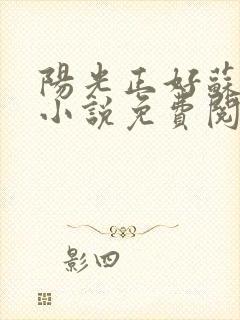 陽光正好蘇
小說免費閱
影四